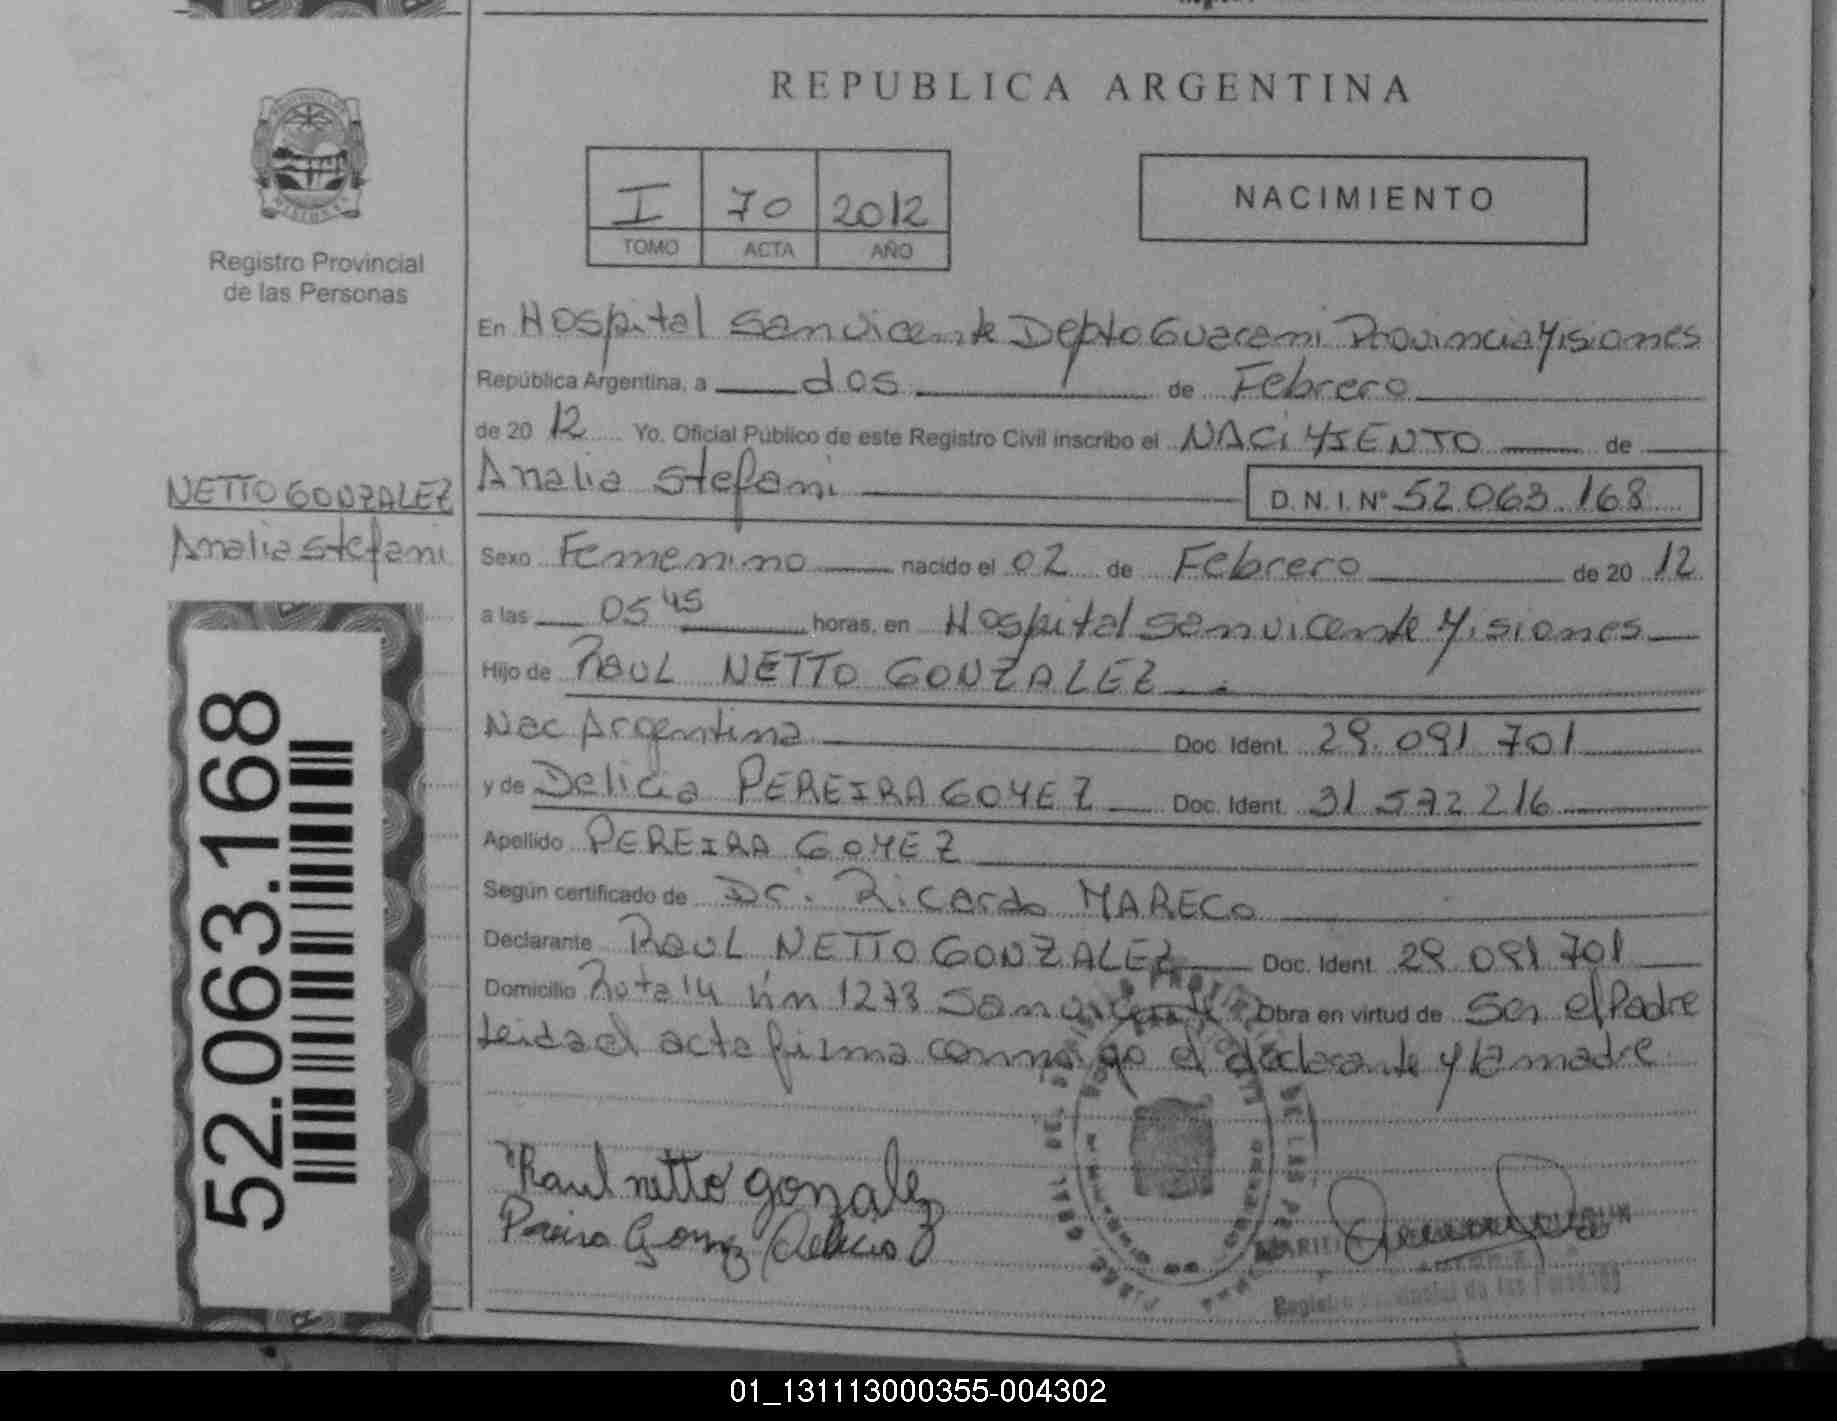 REPUBLICA ARGENTINA
Registro Provincial
de las Personas
I 70 2012
TOMO ACTA AÑO
NACIMIENTO
En Hospital San vicente Depto Guarani Provincia Misiones
República Argentina, a dos de Febrero
de 20 12 Yo. Oficial Público de este Registro Civil inscribo el NACIMIENTO de
Analia Stefani D. N. I. Nº 52.063.168
NETTO GONZALEZ
Analia Stefani
Sexo Femenino nacido el 02 de Febrero de 20 12
a las 05 45 horas, en Hospital San vicente Misiones
Hijo de Raul NETTO GONZALEZ
Nac Argentina Doc. Ident. 29.091 701
y de Delicia PEREIRA GOMEZ Doc. Ident. 31 572 216
Apellido PEREIRA GOMEZ
Según certificado de Dr. Ricardo MARECO
Declarante Raul NETTO GONZALEZ Doc. Ident. 29 091 701
Domicilio Ruta 14 km 1273 San vicente Obra en virtud de Ser el Padre
Leida el acta firma conmigo el declarante y la madre
52.063.168
Raul netto gonzalez
Pereira Gomez Delicia
Registro Provincial de las Personas
01_131113000355-004302